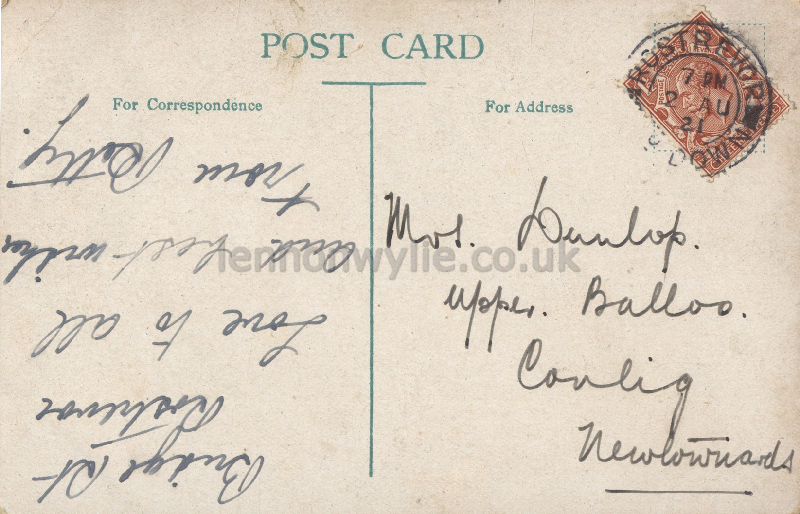 POST CARD
For Correspondence
Bridge St
Rostrevor
Love to all
and best wishes
from
For Address
Mrs. Dunlop.
Upper. Balloo.
Conlig
Newtownards
ROSTREVOR
7 PM
2 AU
21
CO DOWN
POSTAGE
lennonwylie.co.uk